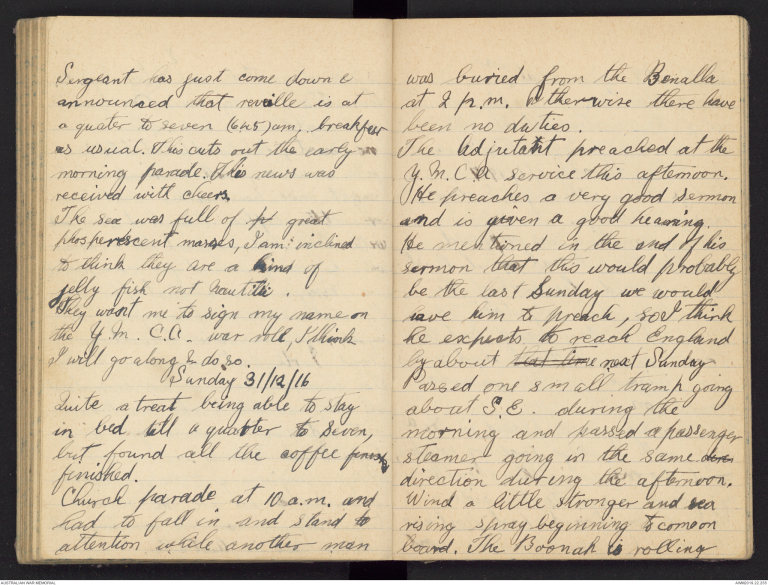 Sergeant has just come down &
announced that reveille is at
a quater to seven (645) am, breakfast
as usual. This cuts out the early
morning parade. This news was
received with cheers.
The sea was full of great
phosperescent masses, I am inclined
to think they are a kind of
jelly fish not nautili.
They want me to sign my name on
the Y.M.C.A. war roll, I think
I will go along & do so.
Sunday 31/12/16
Quite a treat being able to stay
in bed till a quatter to seven,
but found all the coffee finish
finished.
Church parade at 10 a.m. and
had to fall in and stand to
attention while another man
was buried from the Benalla
at 2 p.m. otherwise there have
been no duties.
The Adjutant preached at the
Y.M.C.A service this afternoon.
He preaches a very good sermon
and is given a good hearing.
He mentioned in the end of his
sermon that this would probably
be the last Sunday we would
have him to preach, so I think
he expects to reach England
by about that time next Sunday
Passed one small tramp going
about S.E. during the
morning and passed a passenger
steamer going in the same
direction during the afternoon.
Wind a little stronger and sea
rising spray beginning to come on
board. The Boonah is rolling
AUSTRALIAN WAR MEMORIAL